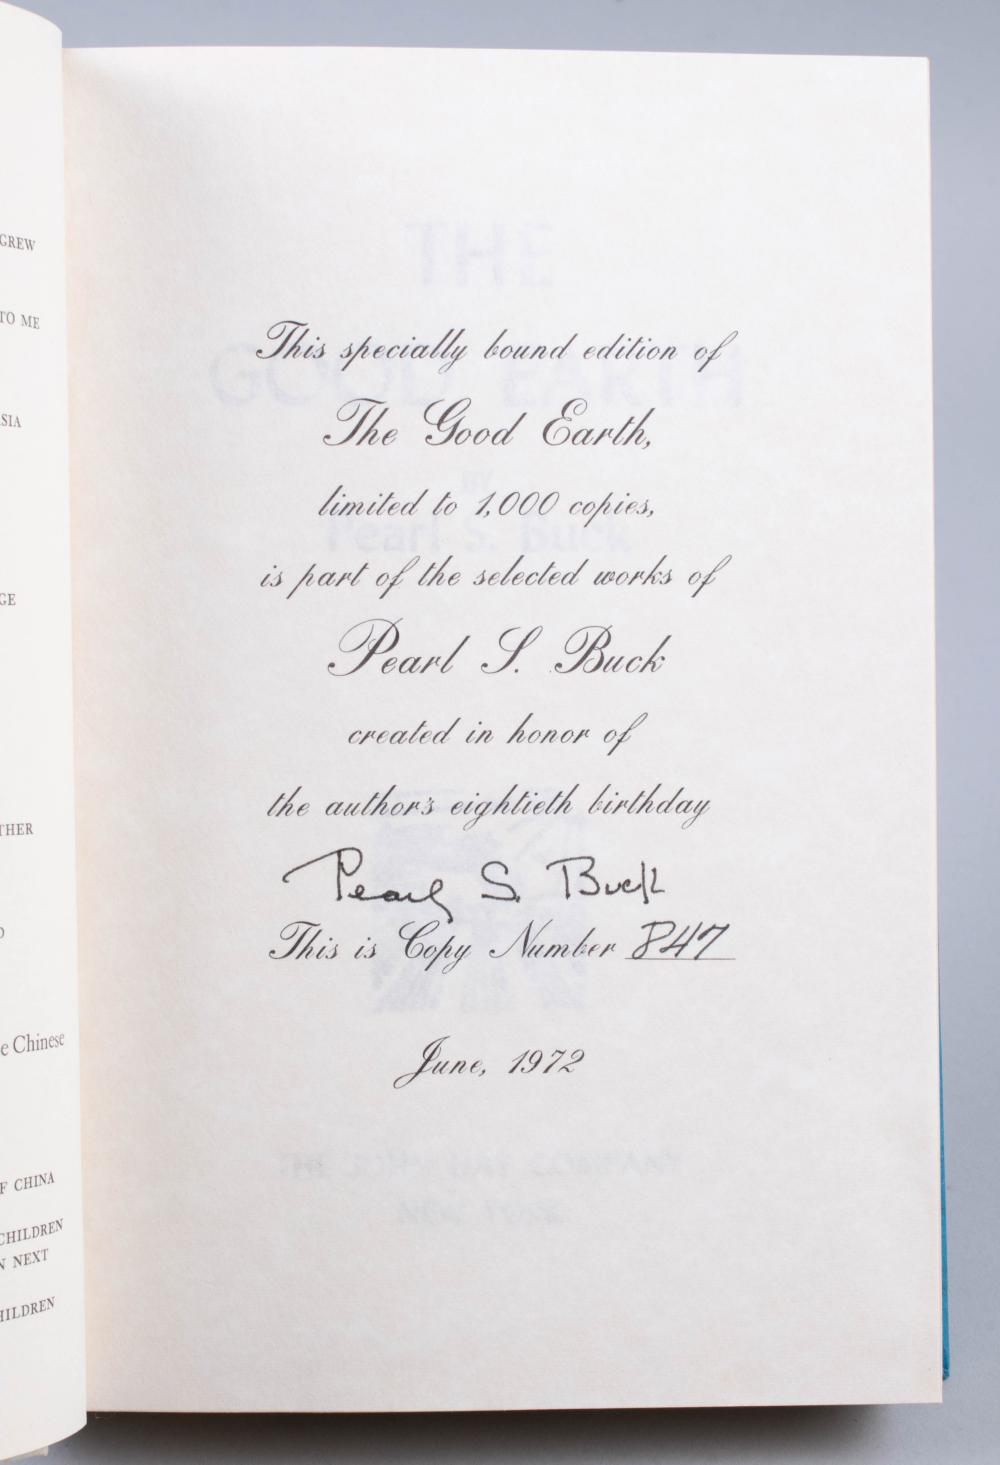 GREW
TO ME
SIA
GE
THER
D
e Chinese
F CHINA
CHILDREN
N NEXT
HILDREN
This specially bound edition of
The Good Earth,
limited to 1,000 copies,
is part of the selected works of
Pearl S. Buck
created in honor of
the author's eightieth birthday
Pearl S. Buck
This is Copy Number 847
June, 1972
THE
GOOD EARTH
BY
Pearl S. Buck
THE JOHN DAY COMPANY
NEW YORK